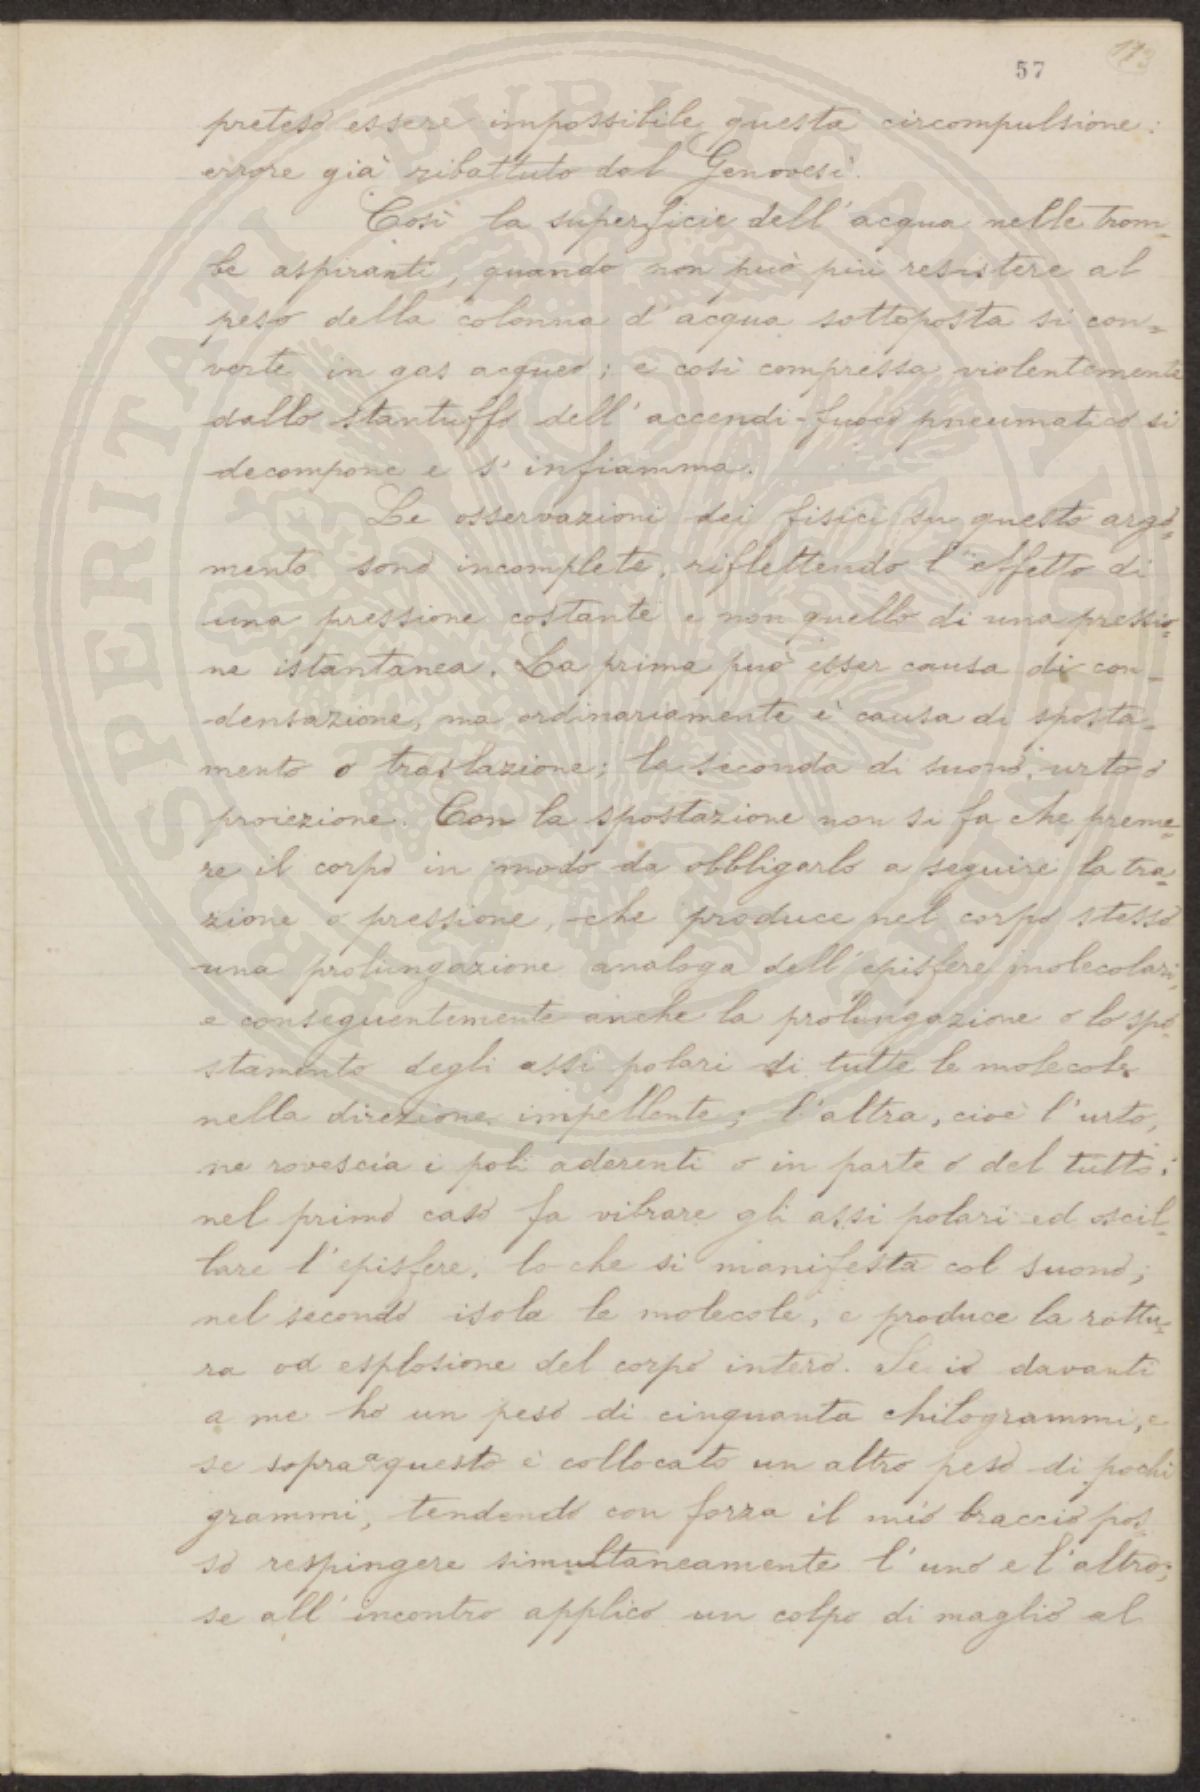 57
173
preteso essere impossibile questa circompulsione:
errore già ribattuto dal Genovesi.
Così la superficie dell'acqua nelle trom=
be aspiranti, quando non può più resistere al
peso della colonna d'acqua sottoposta si con=
verte in gas acqueo; e così compressa violentemente
dallo stantuffo dell'accendi-fuoco pneumatico si
decompone e s'infiamma.
Le osservazioni dei fisici su questo argo=
mento sono incomplete, riflettendo l'effetto di
una pressione costante e non quello di una pressio=
ne istantanea. La prima può esser causa di con=
densazione, ma ordinariamente è causa di sposta=
mento o traslazione; la seconda di suono, urto o
proiezione. Con la spostazione non si fa che preme=
re il corpo in modo da obbligarlo a seguire la tra=
zione o pressione, che produce nel corpo stesso
una prolungazione analoga dell'episfere molecolari,
e conseguentemente anche la prolungazione o lo spo=
stamento degli assi polari di tutte le molecole
nella direzione impellente; l'altra, cioè l'urto,
ne rovescia i poli aderenti o in parte o del tutto:
nel primo caso fa vibrare gli assi polari ed oscil=
lare l'episfere, lo che si manifesta col suono;
nel secondo isola le molecole, e produce la rottu=
ra od esplosione del corpo intero. Se io davanti
a me ho un peso di cinquanta chilogrammi, e
se sopra a questo è collocato un altro peso di pochi
grammi, tendendo con forza il mio braccio pos=
so respingere simultaneamente l'uno e l'altro;
se all'incontro applico un colpo di maglio al
PROSPERITATI PUBLICAE AUGENDAE